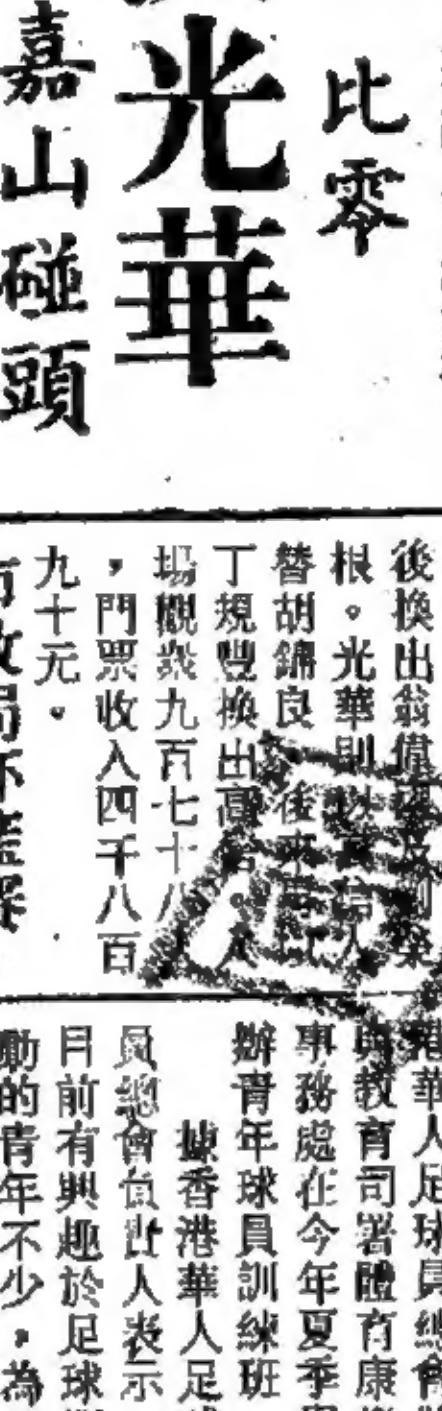 比零
光華
嘉山碰頭
後換出翁偉
根。光華則
替胡錦良 後來
丁規豐換出高
場觀眾九百七十八
，門票收入四千八百
九十元。
華人足球員總會
教育司署體育康
事務處在今年夏季
辦青年球員訓練班
據香港華人足
員總會負責人表示
目前有興趣於足球
動的青年不少，為